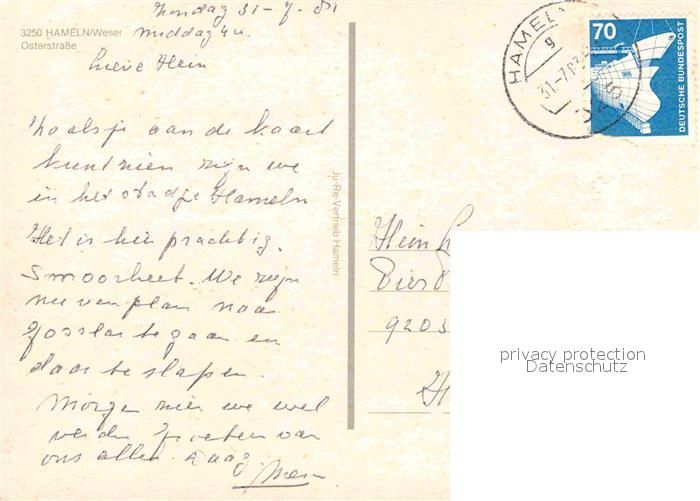 3250 HAMELN/Weser
Osterstraße
Zondag 31-7-
middag 4 u.
Lieve Hein
Zoals je aan de kaart
kunt zien zijn we
in het stadje Hameln
Het is hier prachtig.
Smoorheet. We zijn
nu van plan naar
Gosslar te gaan en
daar te slapen.
Morgen zien we wel
verder Groeten van
ons allen. Daag.
Ju-Re-Vertrieb Hameln
HAMELN
g
31.-7.83
70
DEUTSCHE BUNDESPOST
Hein
9203
privacy protection
Datenschutz